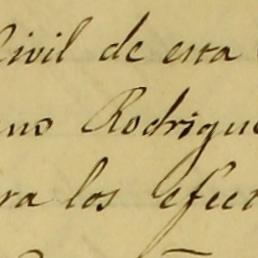 Civil de esta
no Rodrigue
ra los efect